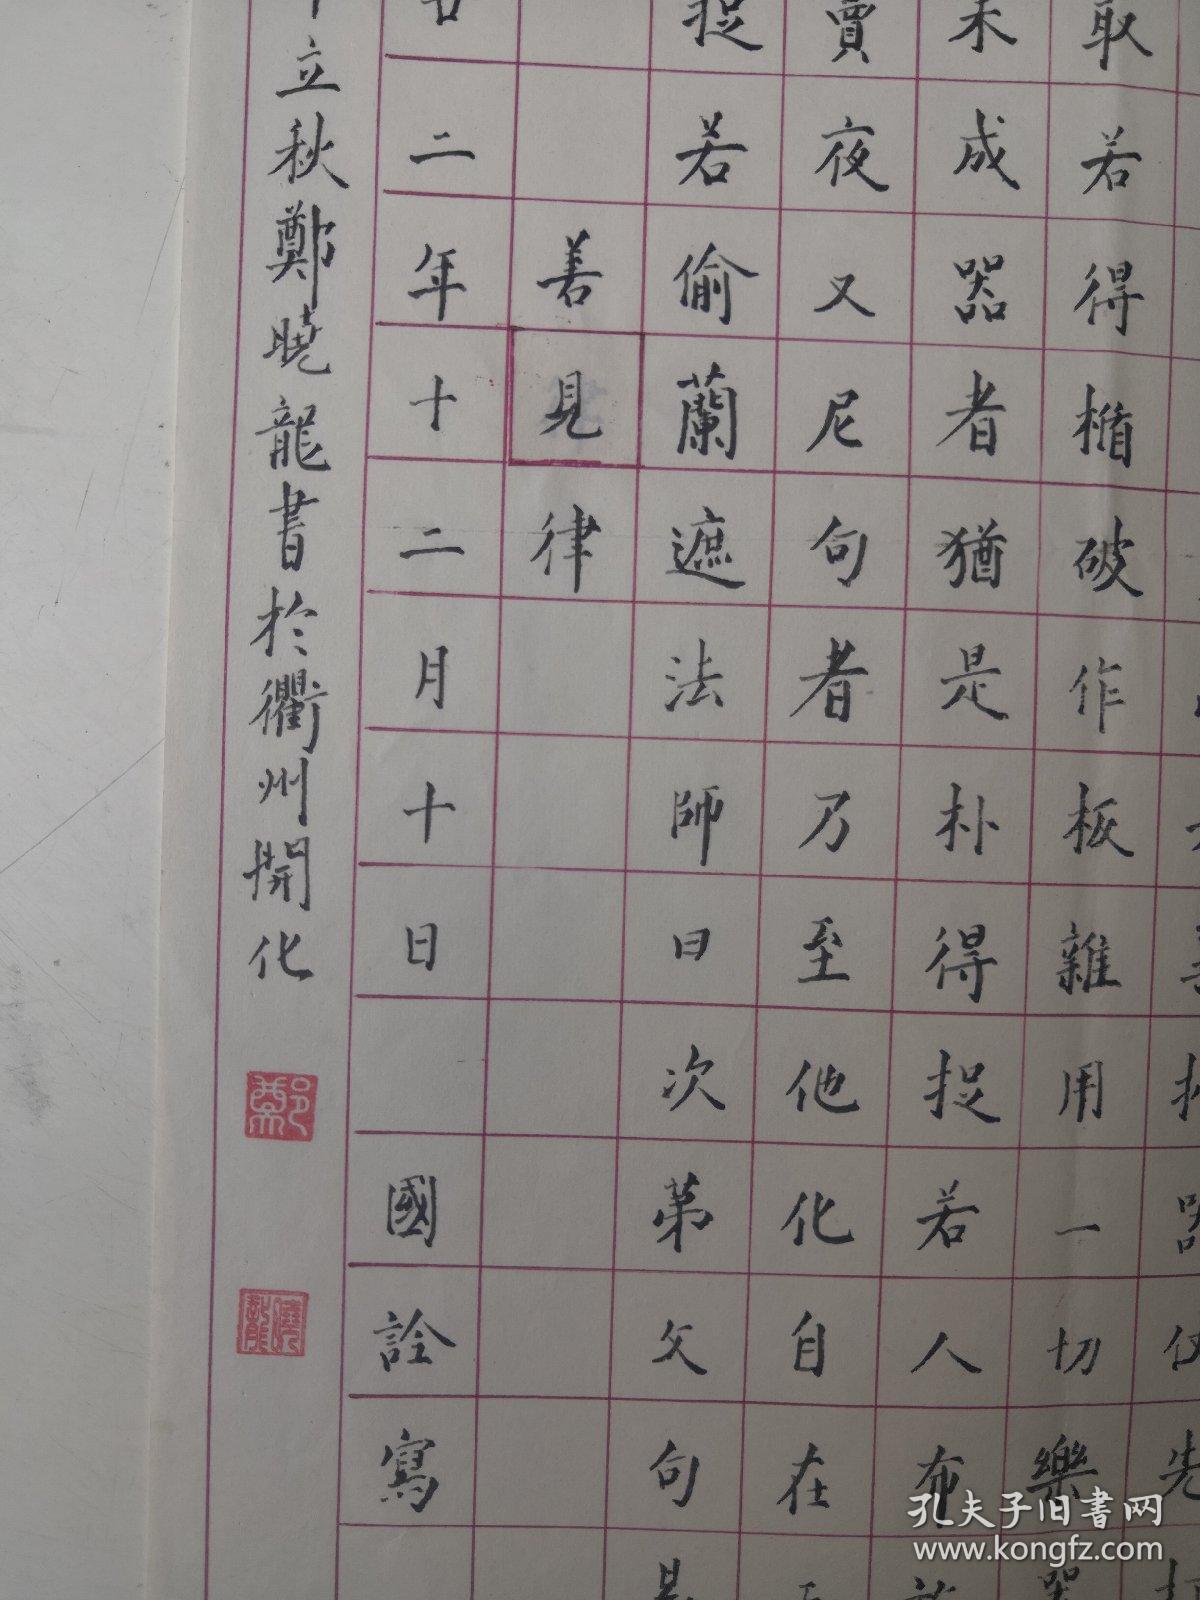 取若得楯破作板雜用一切樂
未成器者猶是朴得捉若人布
賣夜叉尼句者乃至他化自在
捉若偷蘭遮法師曰次第文句
善見律
二年十二月十日 國詮寫
立秋鄭曉龍書於衢州開化
鄭
曉龍
孔夫子旧书网
www.kongfz.com